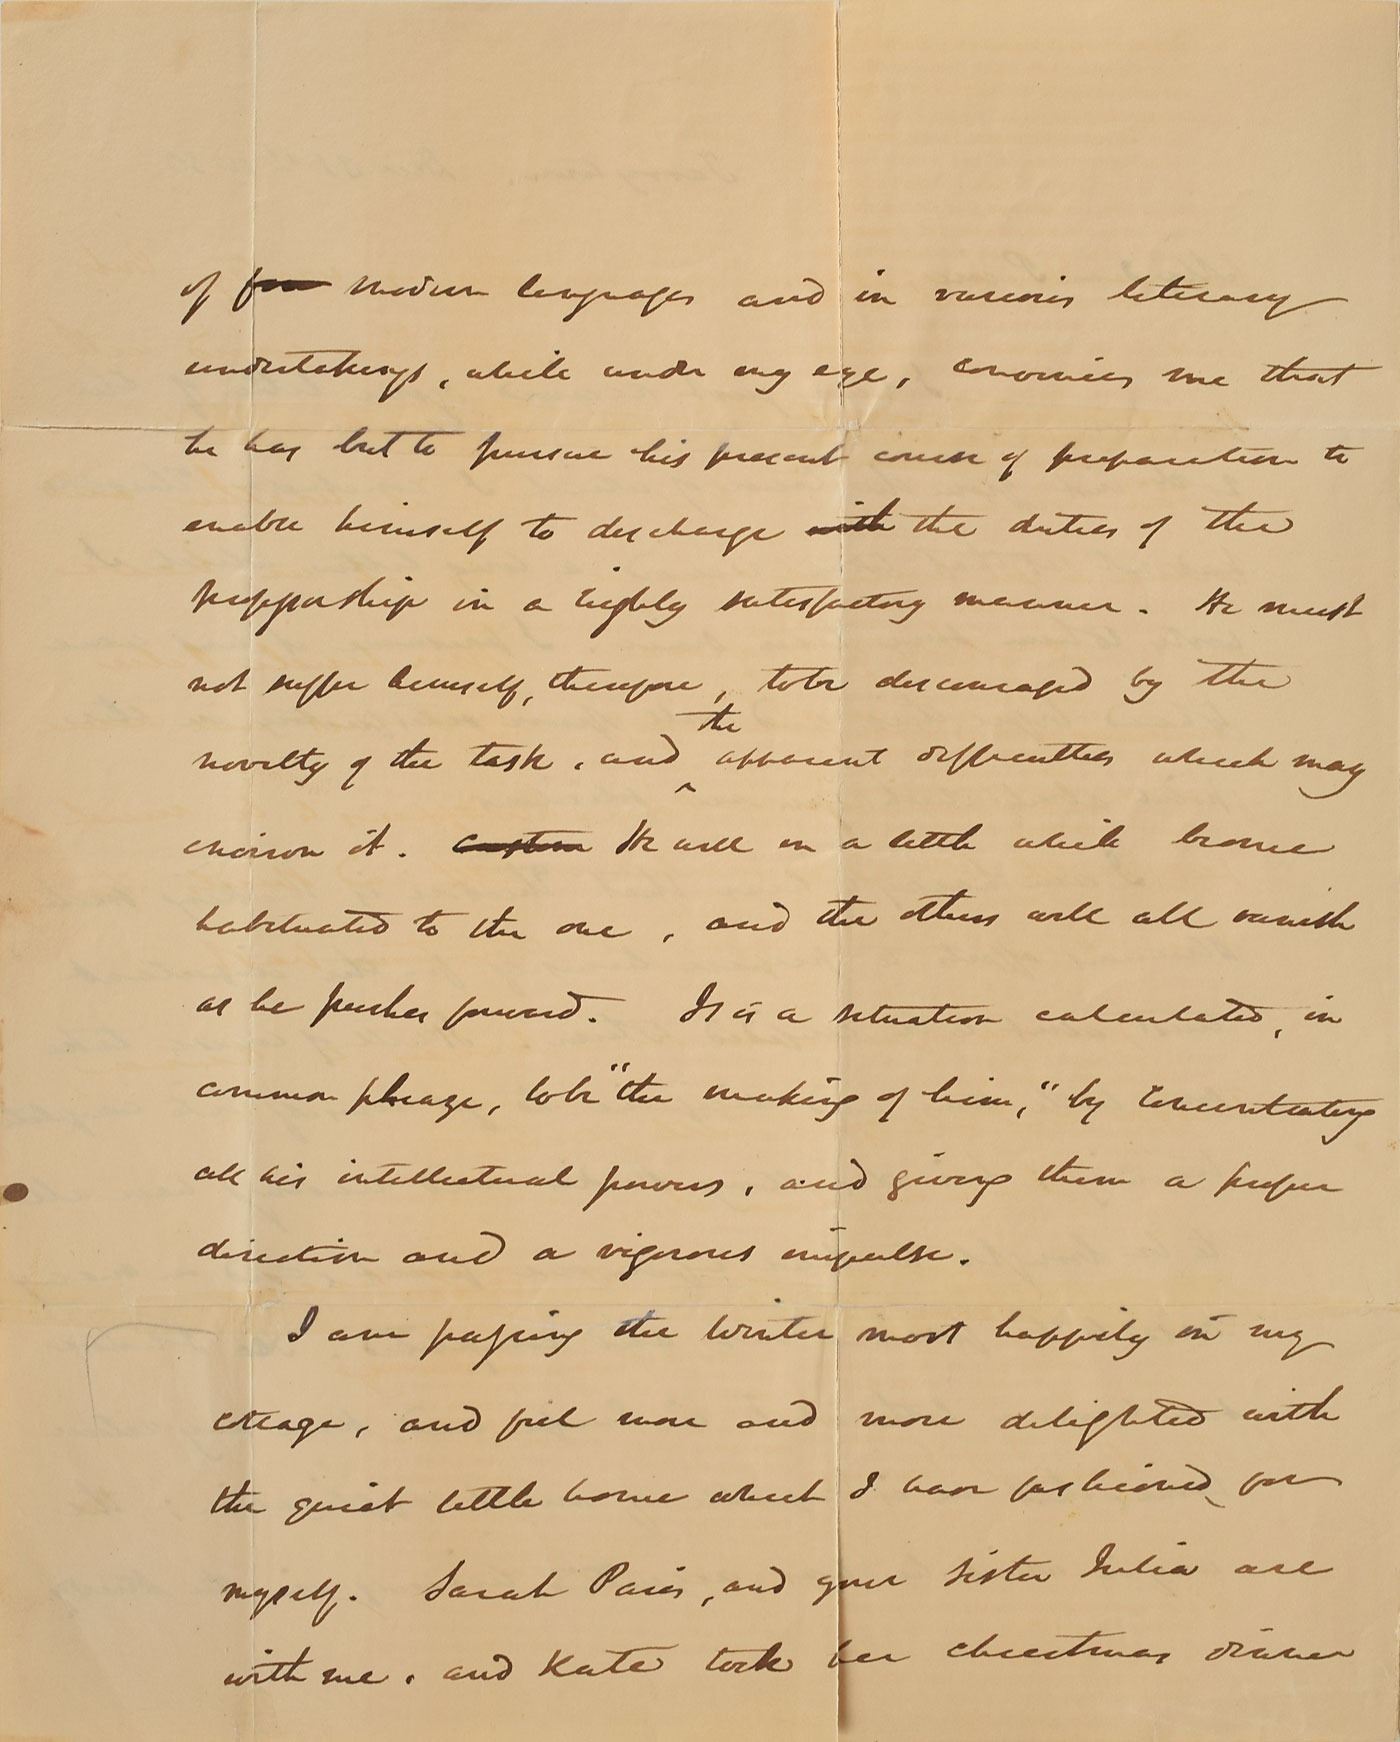 of modern languages and in various literary
undertakings, while under my eye, convinces me that
he has but to pursue his present course of preparation to
enable himself to discharge with the duties of the
professorship in a highly satisfactory manner. He must
not suffer himself, therefore, to be discouraged by the
the
novelty of the task, and ^ apparent difficulties which may
environ it. He will in a little while become
habituated to the one, and the others will all vanish
as he pushes forward. It is a situation calculated, in
common phraze, to be "the making of him," by concentrating
all his intellectual powers, and giving them a proper
direction and a vigorous impulse.
I am passing the winter most happily in my
cottage, and feel more and more delighted with
the quiet little home which I have fashioned for
myself. Sarah Paris, and your sister Julia are
with me, and Kate took her christmas dinner